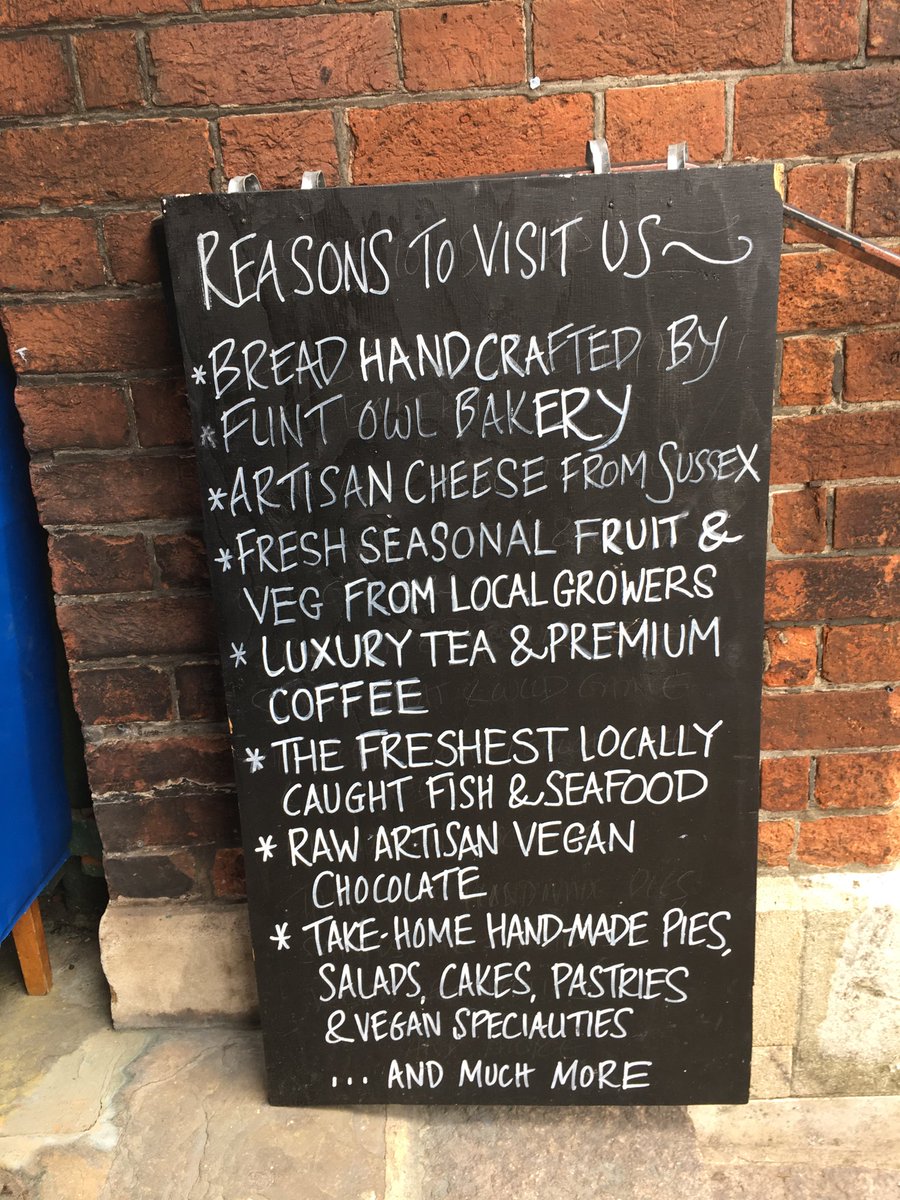 REASONS TO VISIT US~
*BREAD HANDCRAFTED BY
*FLINT OWL BAKERY
*ARTISAN CHEESE FROM SUSSEX
*FRESH SEASONAL FRUIT &
VEG FROM LOCAL GROWERS
* LUXURY TEA & PREMIUM
COFFEE
* THE FRESHEST LOCALLY
CAUGHT FISH & SEAFOOD
* RAW ARTISAN VEGAN
CHOCOLATE
* TAKE-HOME HAND-MADE PIES,
SALADS, CAKES, PASTRIES
& VEGAN SPECIALITIES
... AND MUCH MORE